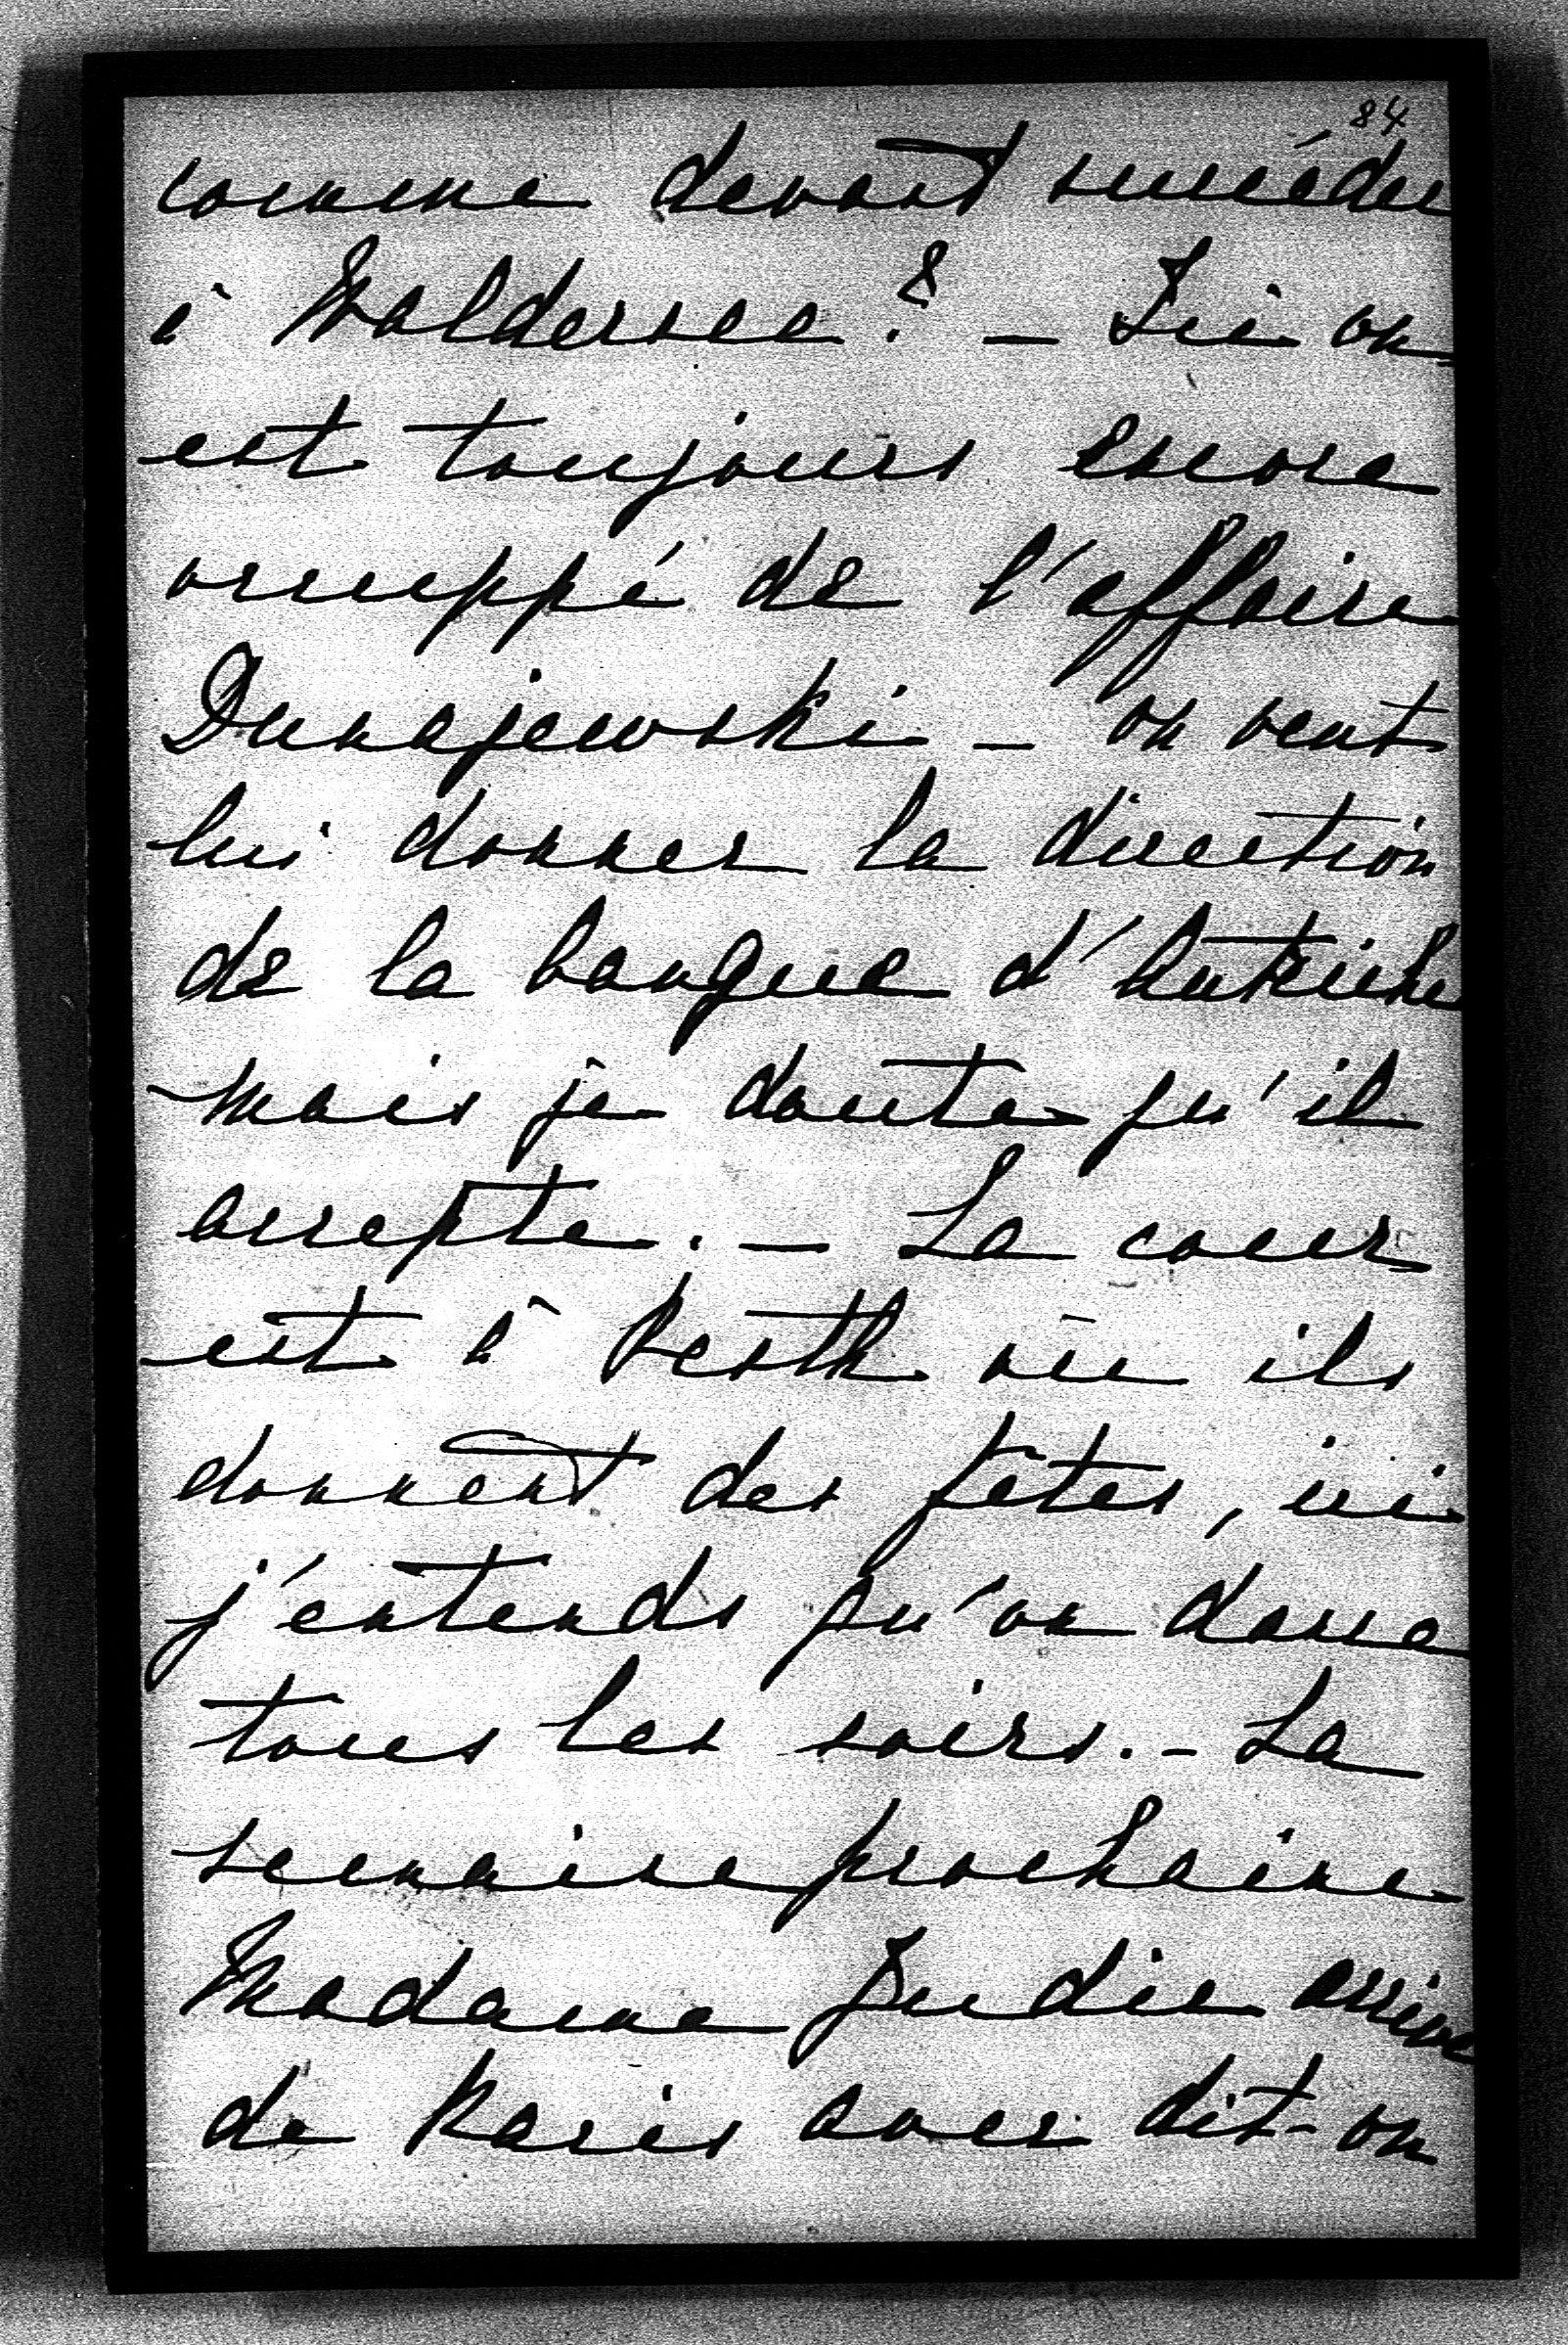 84
comme devant succéder
à Waldersee? – Ici on
est toujours encore
occuppé de l'affaire
Dunajewski – on veut
lui donner la direction
de la banque d'Autriche
mais je doute qu'il
accepte. – La cour
est à Pesth où ils
donnent des fêtes, ici
j'entends qu'on danse
tous les soirs. – La
semaine prochaine
Madame Judic arrive
de Paris avec dit-on